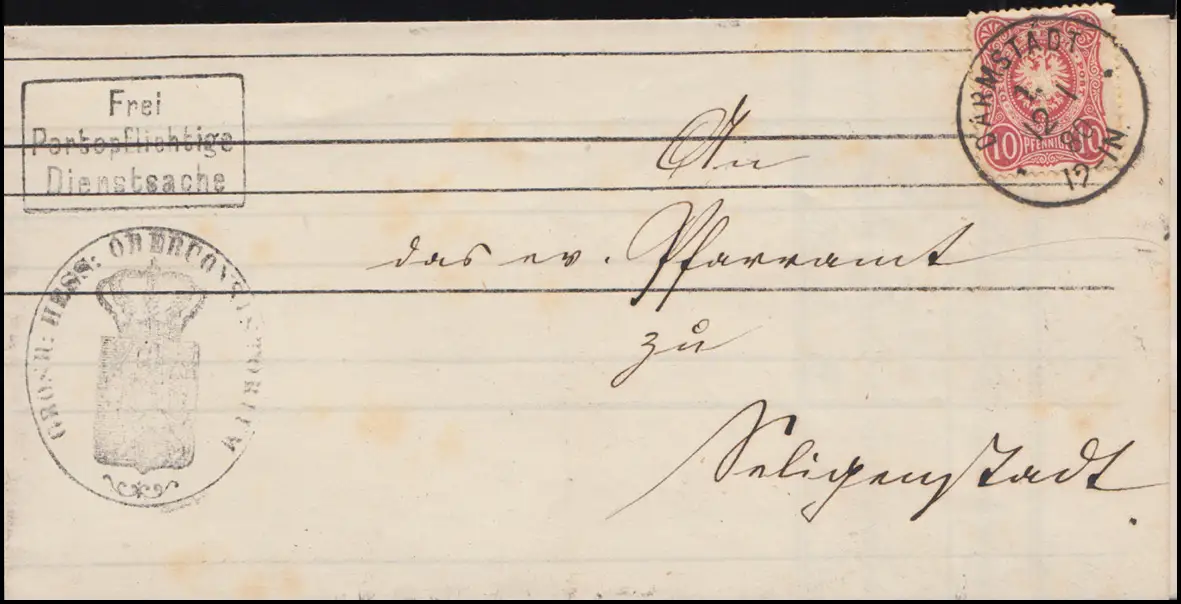 Frei
Portopflichtige
Dienstsache
GROSH: HESS: OBERCONSISTORIUM
DARMSTADT
12 1
80
12-1N.
10 PFENNIG 10
An
das ev. Pfarramt
zu
Seligenstadt.